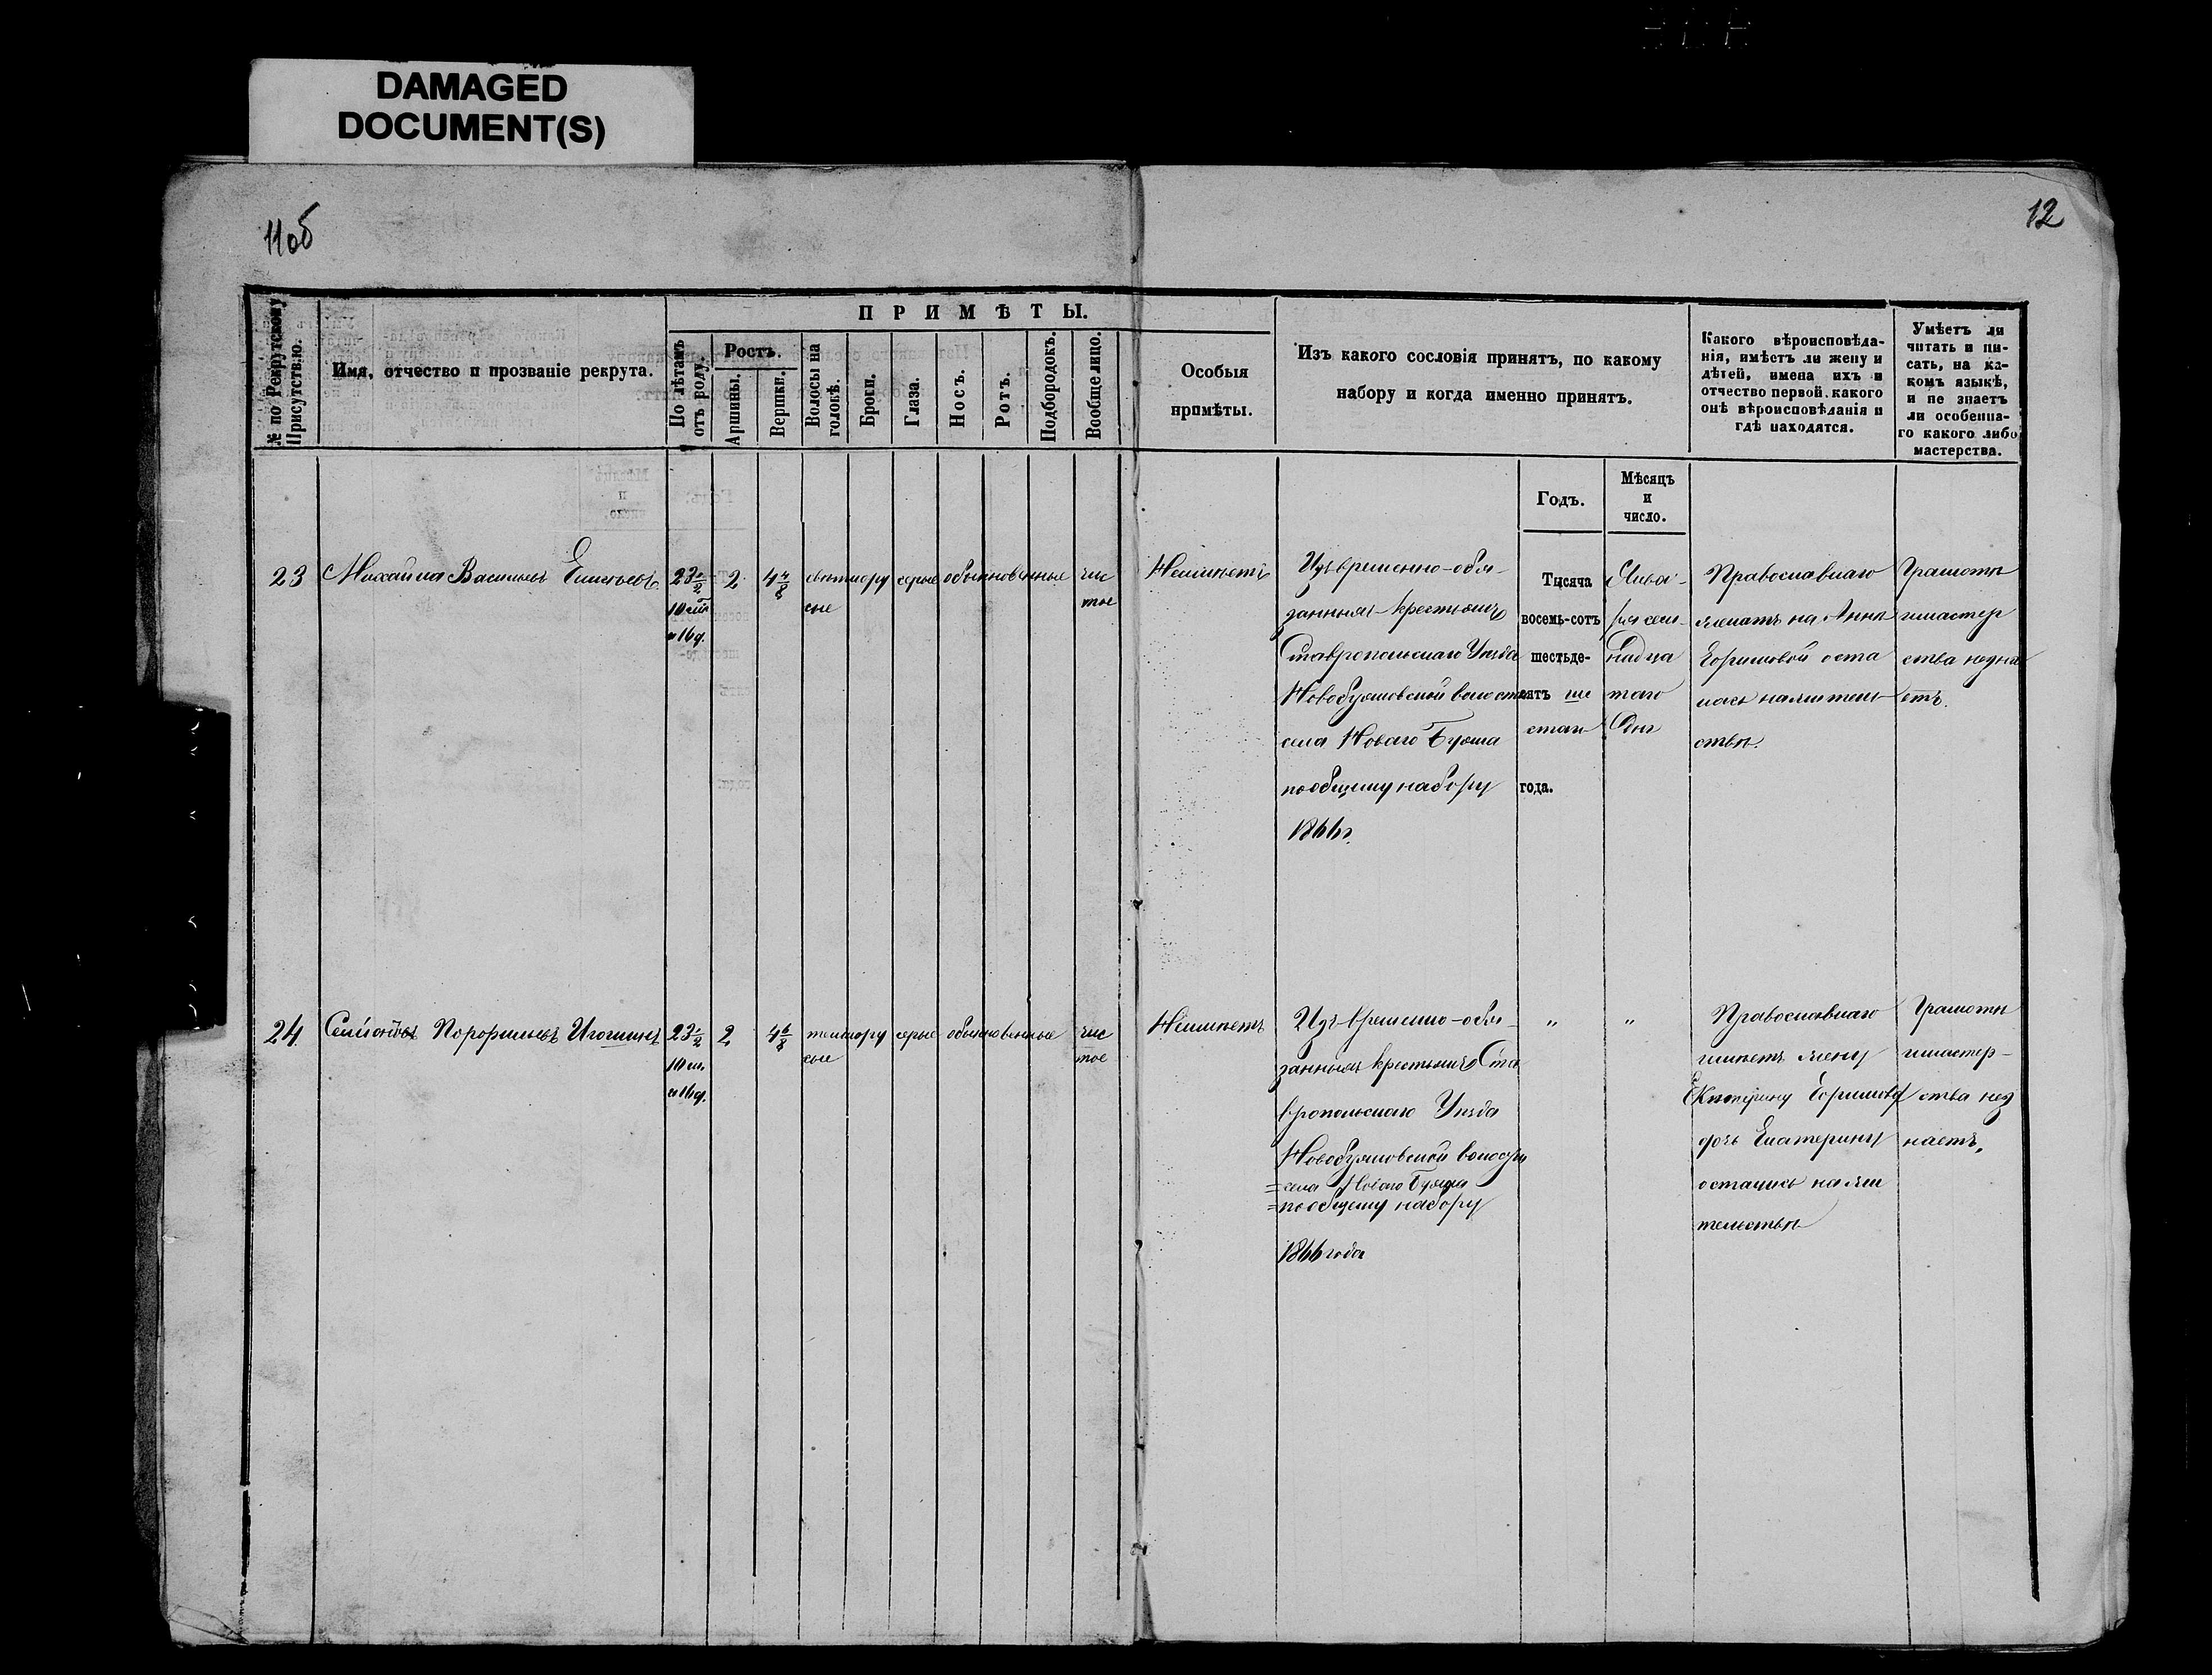 DAMAGED
DOCUMENT(S)
11об
12
№ по Рекрутскому
Присутствію.
Имя, отчество и прозваніе рекрута.
ПРИМѢТЫ.
По лѣтамъ
отъ роду.
Ростъ.
Аршины.
Вершки.
Волосы на
головѣ.
Брови.
Глаза.
Носъ.
Ротъ.
Подбородокъ.
Вообще лицо.
Особыя
примѣты.
Изъ какого сословія принятъ, по какому
набору и когда именно принятъ.
Какого вѣроисповѣда-
нія, имѣетъ ли жену и
дѣтей, имена ихъ и
отчество первой. какого
онѣ вѣроисповѣданія и
гдѣ находятся.
Умѣетъ ли
читать и пи-
сать, на ка-
комъ языкѣ,
и не знаетъ
ли особенна-
го какого либо
мастерства.
Годъ.
Мѣсяцъ
и
число.
23
Михайла Васильевъ
23 1/2
и 16 д.
2
4 4/8
светлору
сые
серые
обыкновенные
чис
тое
Неимѣетъ
Изъ временно-обя-
занныхъ крестьянъ
Ставропольскаго Уѣзда
Новобуянской волости
села Новаго Буяна
пообщему набору
1866г.
Тысяча
восемь-сотъ
шестьде-
сятъ ше
стаго
года.
Янва-
ря сем-
надца
таго
Дня
Православнаго
женатъ на Аннѣ
Ефимовой оста
лась нажитель
ствѣ.
Грамоты
имастер
ства незна
етъ.
24
Семіонъ
23 1/2
и 16 д.
2
4 6/8
темнору
сые
серые
обыкновенные
чис
тое
Неимѣетъ
Изъ временно-обя-
занныхъ крестьянъ Ста
вропольскаго Уѣзда
Новобуянской волости
=села Новаго Буяна
=пообщему набору
1866 года
"
"
Православнаго
имѣетъ жену
Екатерину Ефимову
дочь Екатерину
остались нажи
тельствѣ
Грамоты
имастер-
ства нез
наетъ.